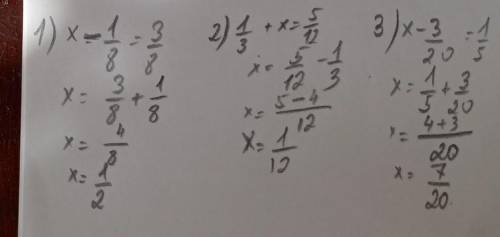 1) x - 1/8 = 3/8
x = 3/8 + 1/8
x = 4/8
x = 1/2
2) 1/3 + x = 5/12
x = 5/12 - 1/3
x = 5-4/12
x = 1/12
3) x - 3/20 = 1/5
x = 1/5 + 3/20
x = 4+3/20
x = 7/20